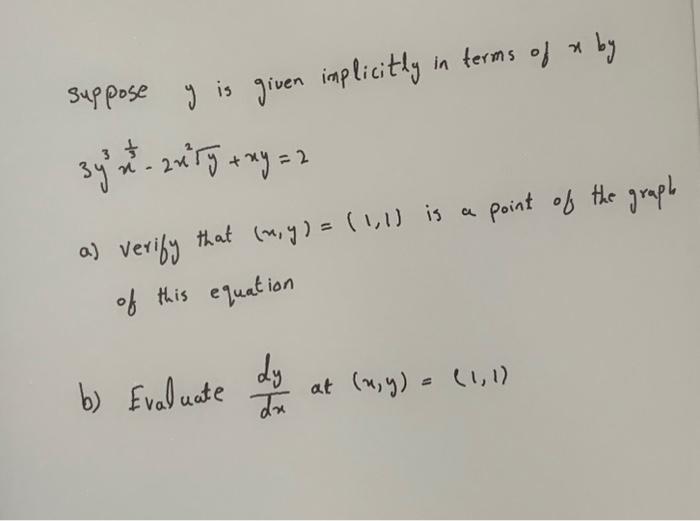 suppose y is given implicitly in terms of x by
3y³x^{1/3} - 2x²√y + xy = 2
a) verify that (x,y) = (1,1) is a point of the graph
of this equation
b) Evaluate dy/dx at (x,y) = (1,1)